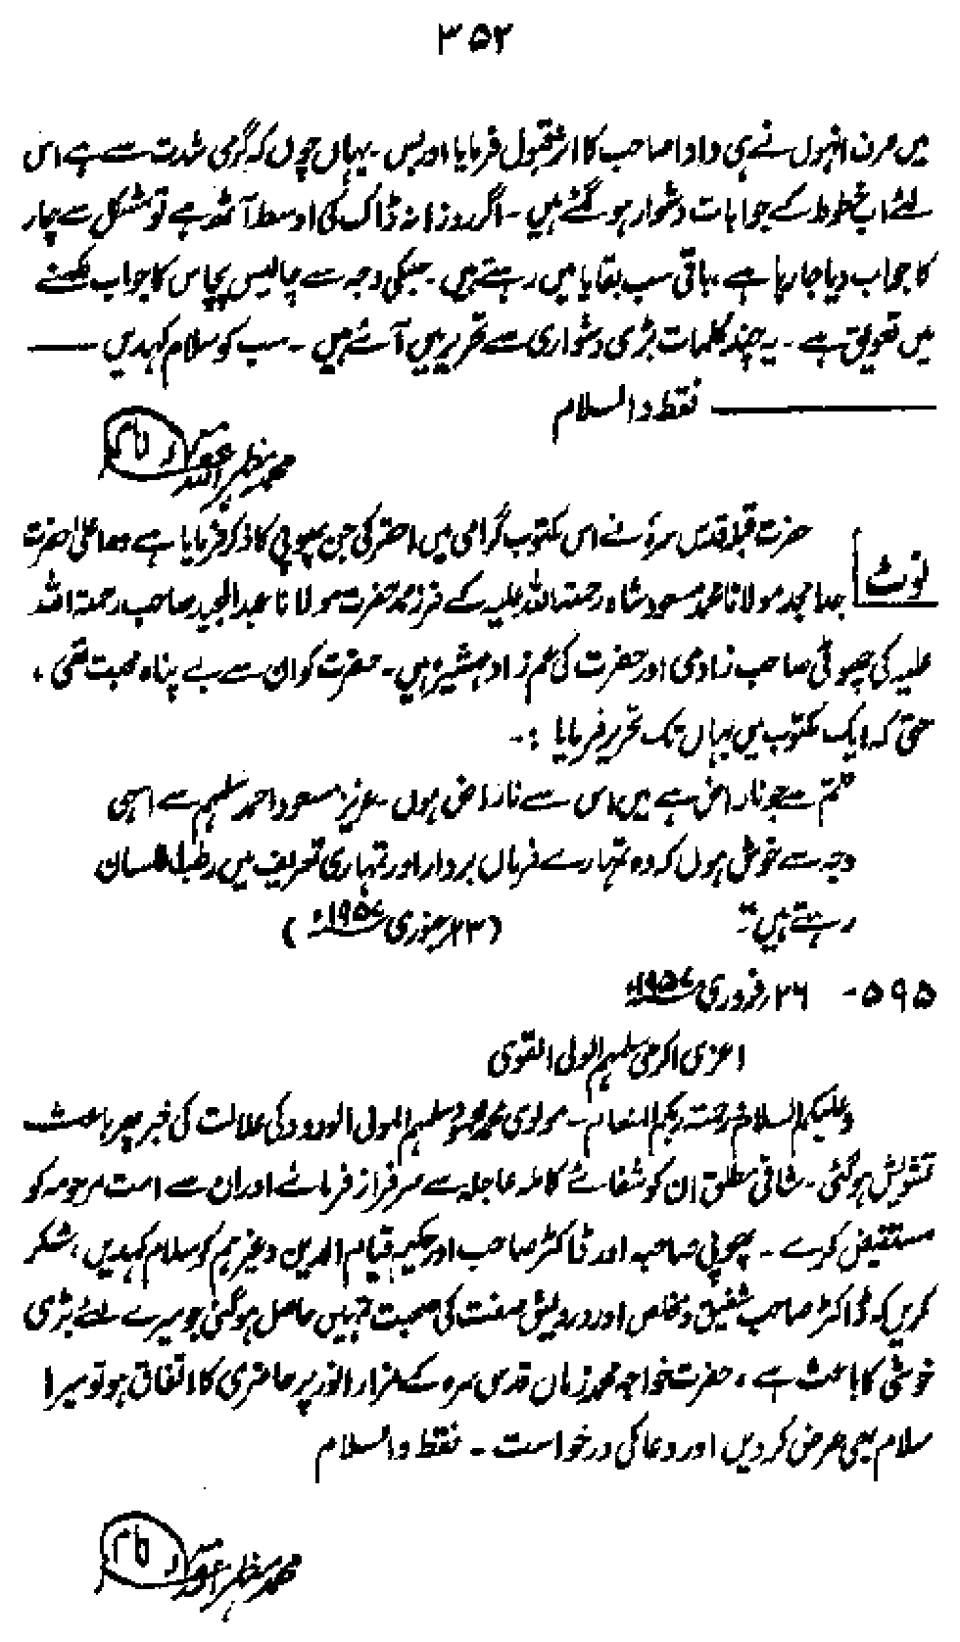 ۳۵۲
میں صرف انہوں نے ہی دادا صاحب کا اثر قبول فرمایا اور بس ۔ یہاں چوں کہ گرمی شدت سے ہے اس
لئے اب خطوط کے جوابات دشوار ہو گئے ہیں ۔ اگر روزانہ ڈاک کی اوسط آٹھ ہے تو مشکل سے چار
کا جواب دیا جا رہا ہے ، باقی سب بقایا میں رہتے ہیں ۔ جسکی وجہ سے چالیس پچاس کا جواب لکھنے
میں تعویق ہے ۔ یہ چند کلمات بڑی دشواری سے تحریر میں آئے ہیں ۔ سب کو سلام کہدیں ——
—————— فقط والسلام
محمد مظہر اللہ غفرلہ
نوٹ حضرت قبلہ قدس سرہٗ نے اس مکتوب گرامی میں احقر کی جن پھوپی کا ذکر فرمایا ہے وہ اعلیٰ حضرت
جد امجد مولانا محمد مسعود شاہ رحمتہ اللہ علیہ کے فرزند حضرت مولانا عبدالمجید صاحب رحمتہ اللہ
علیہ کی چھوٹی صاحب زادی اور حضرت کی عم زاد ہمشیرہ ہیں ۔ حضرت کو ان سے بے پناہ محبت تھی ،
حتیٰ کہ ایک مکتوب میں یہاں تک تحریر فرمایا :-
تم سے جو ناراض ہے میں اس سے ناراض ہوں ۔ عزیز مسعود احمد سلمہم سے اسی
وجہ سے خوش ہوں کہ وہ تمہارے فرماں بردار اور تمہاری تعریف میں رطب اللسان
رہتے ہیں ۔" (۲۳ر جنوری ۱۹۵۷ء)
۵۹۵ - ۲۶ر فروری ۱۹۵۷ء
اعزی اکرمی سلمہم المولی القوی
وعلیکم السلام و رحمتہ ربکم المنعام ۔ مولوی محمد محمود سلمہم المولی الودود کی علالت کی خبر پھر باعث
تشویش ہو گئی ۔ شافی مطلق ان کو شفائے کاملہ عاجلہ سے سرفراز فرمائے اور ان سے امت مرحومہ کو
مستفیض کرے ۔ پھوپی صاحبہ اور ڈاکٹر صاحب اور حکیم قیام الدین وغیرہم کو سلام کہدیں ، شکر
کریں کہ ڈاکٹر صاحب شفیق و مخلص اور درویش صفت کی صحبت تمہیں حاصل ہو گئی جو میرے لئے بڑی
خوشی کا باعث ہے ، حضرت خواجہ محمد زمان قدس سرہ کے مزار انور پر حاضری کا اتفاق ہو تو میرا
سلام بھی عرض کر دیں اور دعا کی درخواست ۔ فقط والسلام
محمد مظہر اللہ غفرلہ